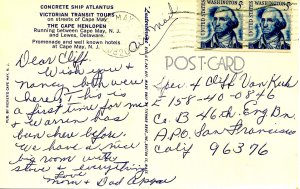 CONCRETE SHIP ATLANTUS
VICTORIAN TRANSIT TOURS
on streets of Cape May
THE CAPE HENLOPEN
Running between Cape May, N. J.
and Lewes, Delaware.
Promenade and well known hotels
at Cape May, N. J.
Dear Cliff,
Wish you &
nancy both were
here. This is
a first time for me
& Warren has
bun here before.
We have a nice
big room with
stove & everything
Love
Mom & Dad
MAY
Air mail
POST-CARD
Spec 4 Cliff Van Kirk
E 158-40-0846
Co. B 46th Eng Bn
A.P.O. San Francisco
Calif 96376